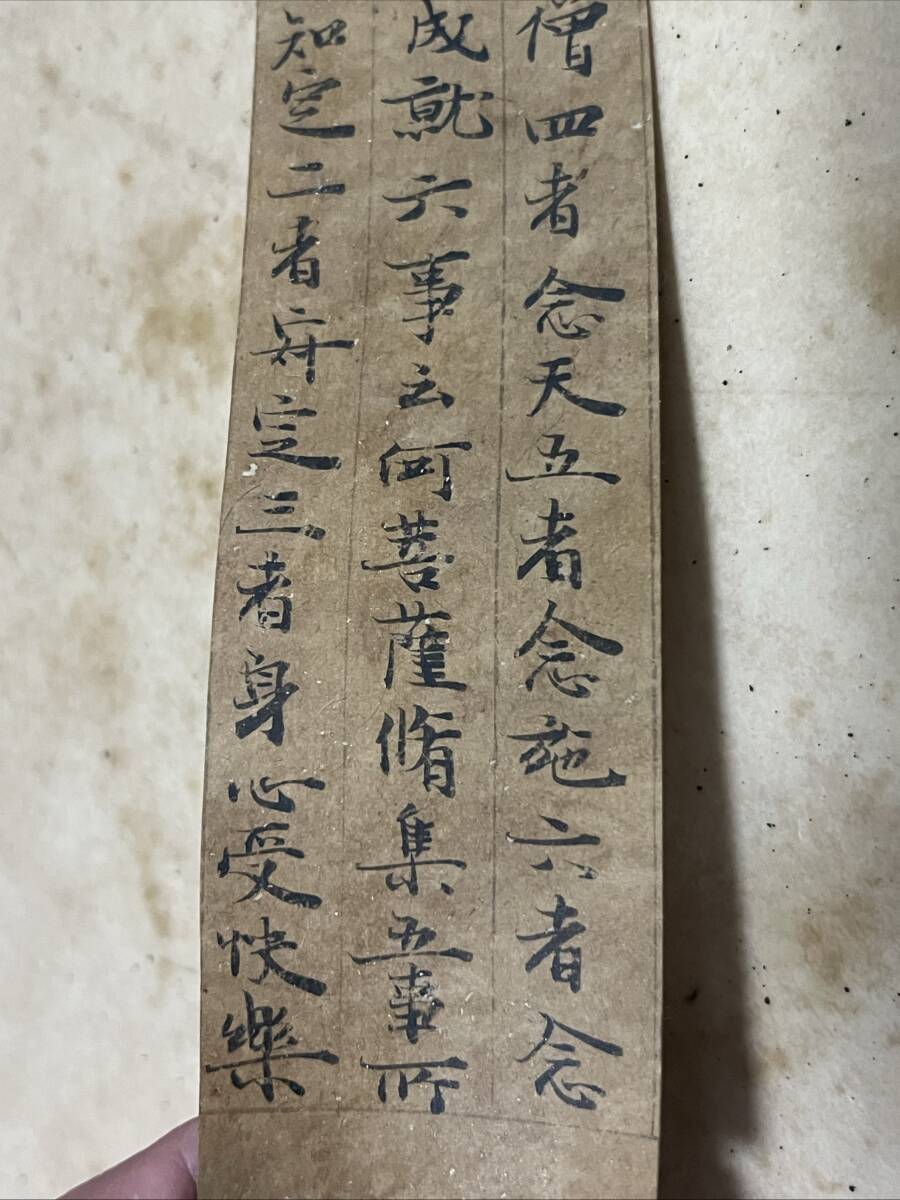 僧四者念天五者念施六者念
成就六事云何菩薩脩集五事所
知定二者㝎定三者身心受快樂